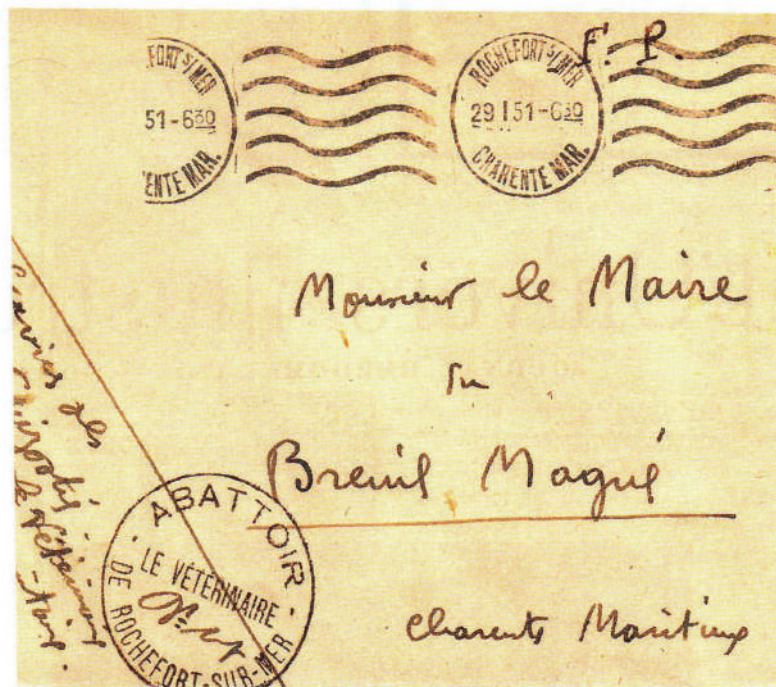 F. P.
.FORT S/MER
51-6 30
ENTE MAR.
ROCHEFORT S/MER
29 I 51-6 30
CHARENTE MAR.
Monsieur le Maire
du
Breuil Magné
Charente Maritime
Service des
le Vétérin
-aire.
ABATTOIR
LE VÉTÉRINAIRE
DE ROCHEFORT-SUR-MER